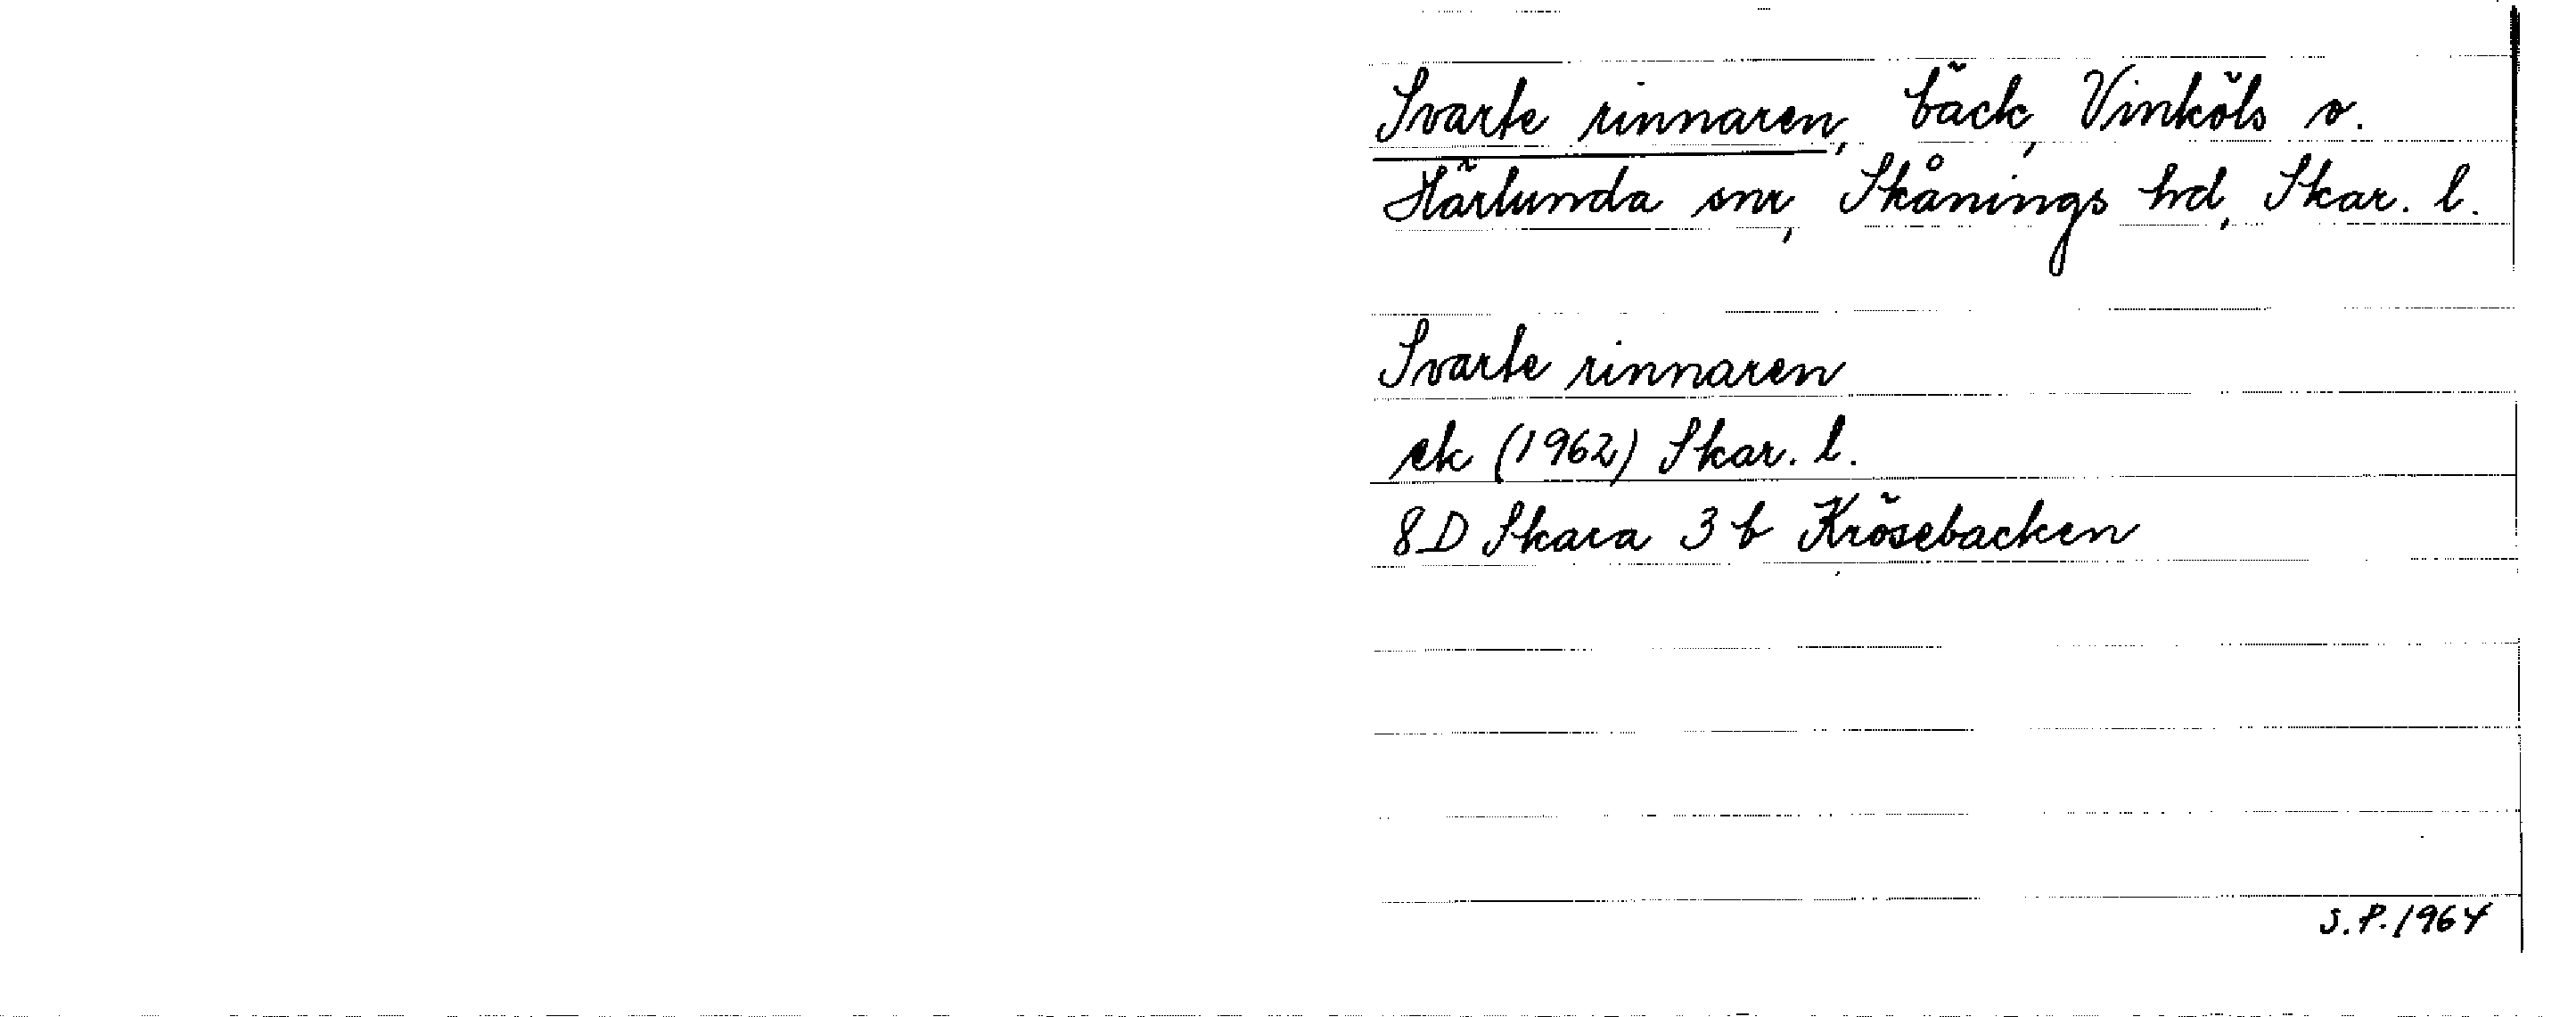 Svarte rinnaren, bäck, Vinköls o.
Härlunda snr, Skånings hd, Skar. l.
Svarte rinnaren
ek (1962) Skar. l.
8D Skara 3 b Krösebacken
S.P. 1964